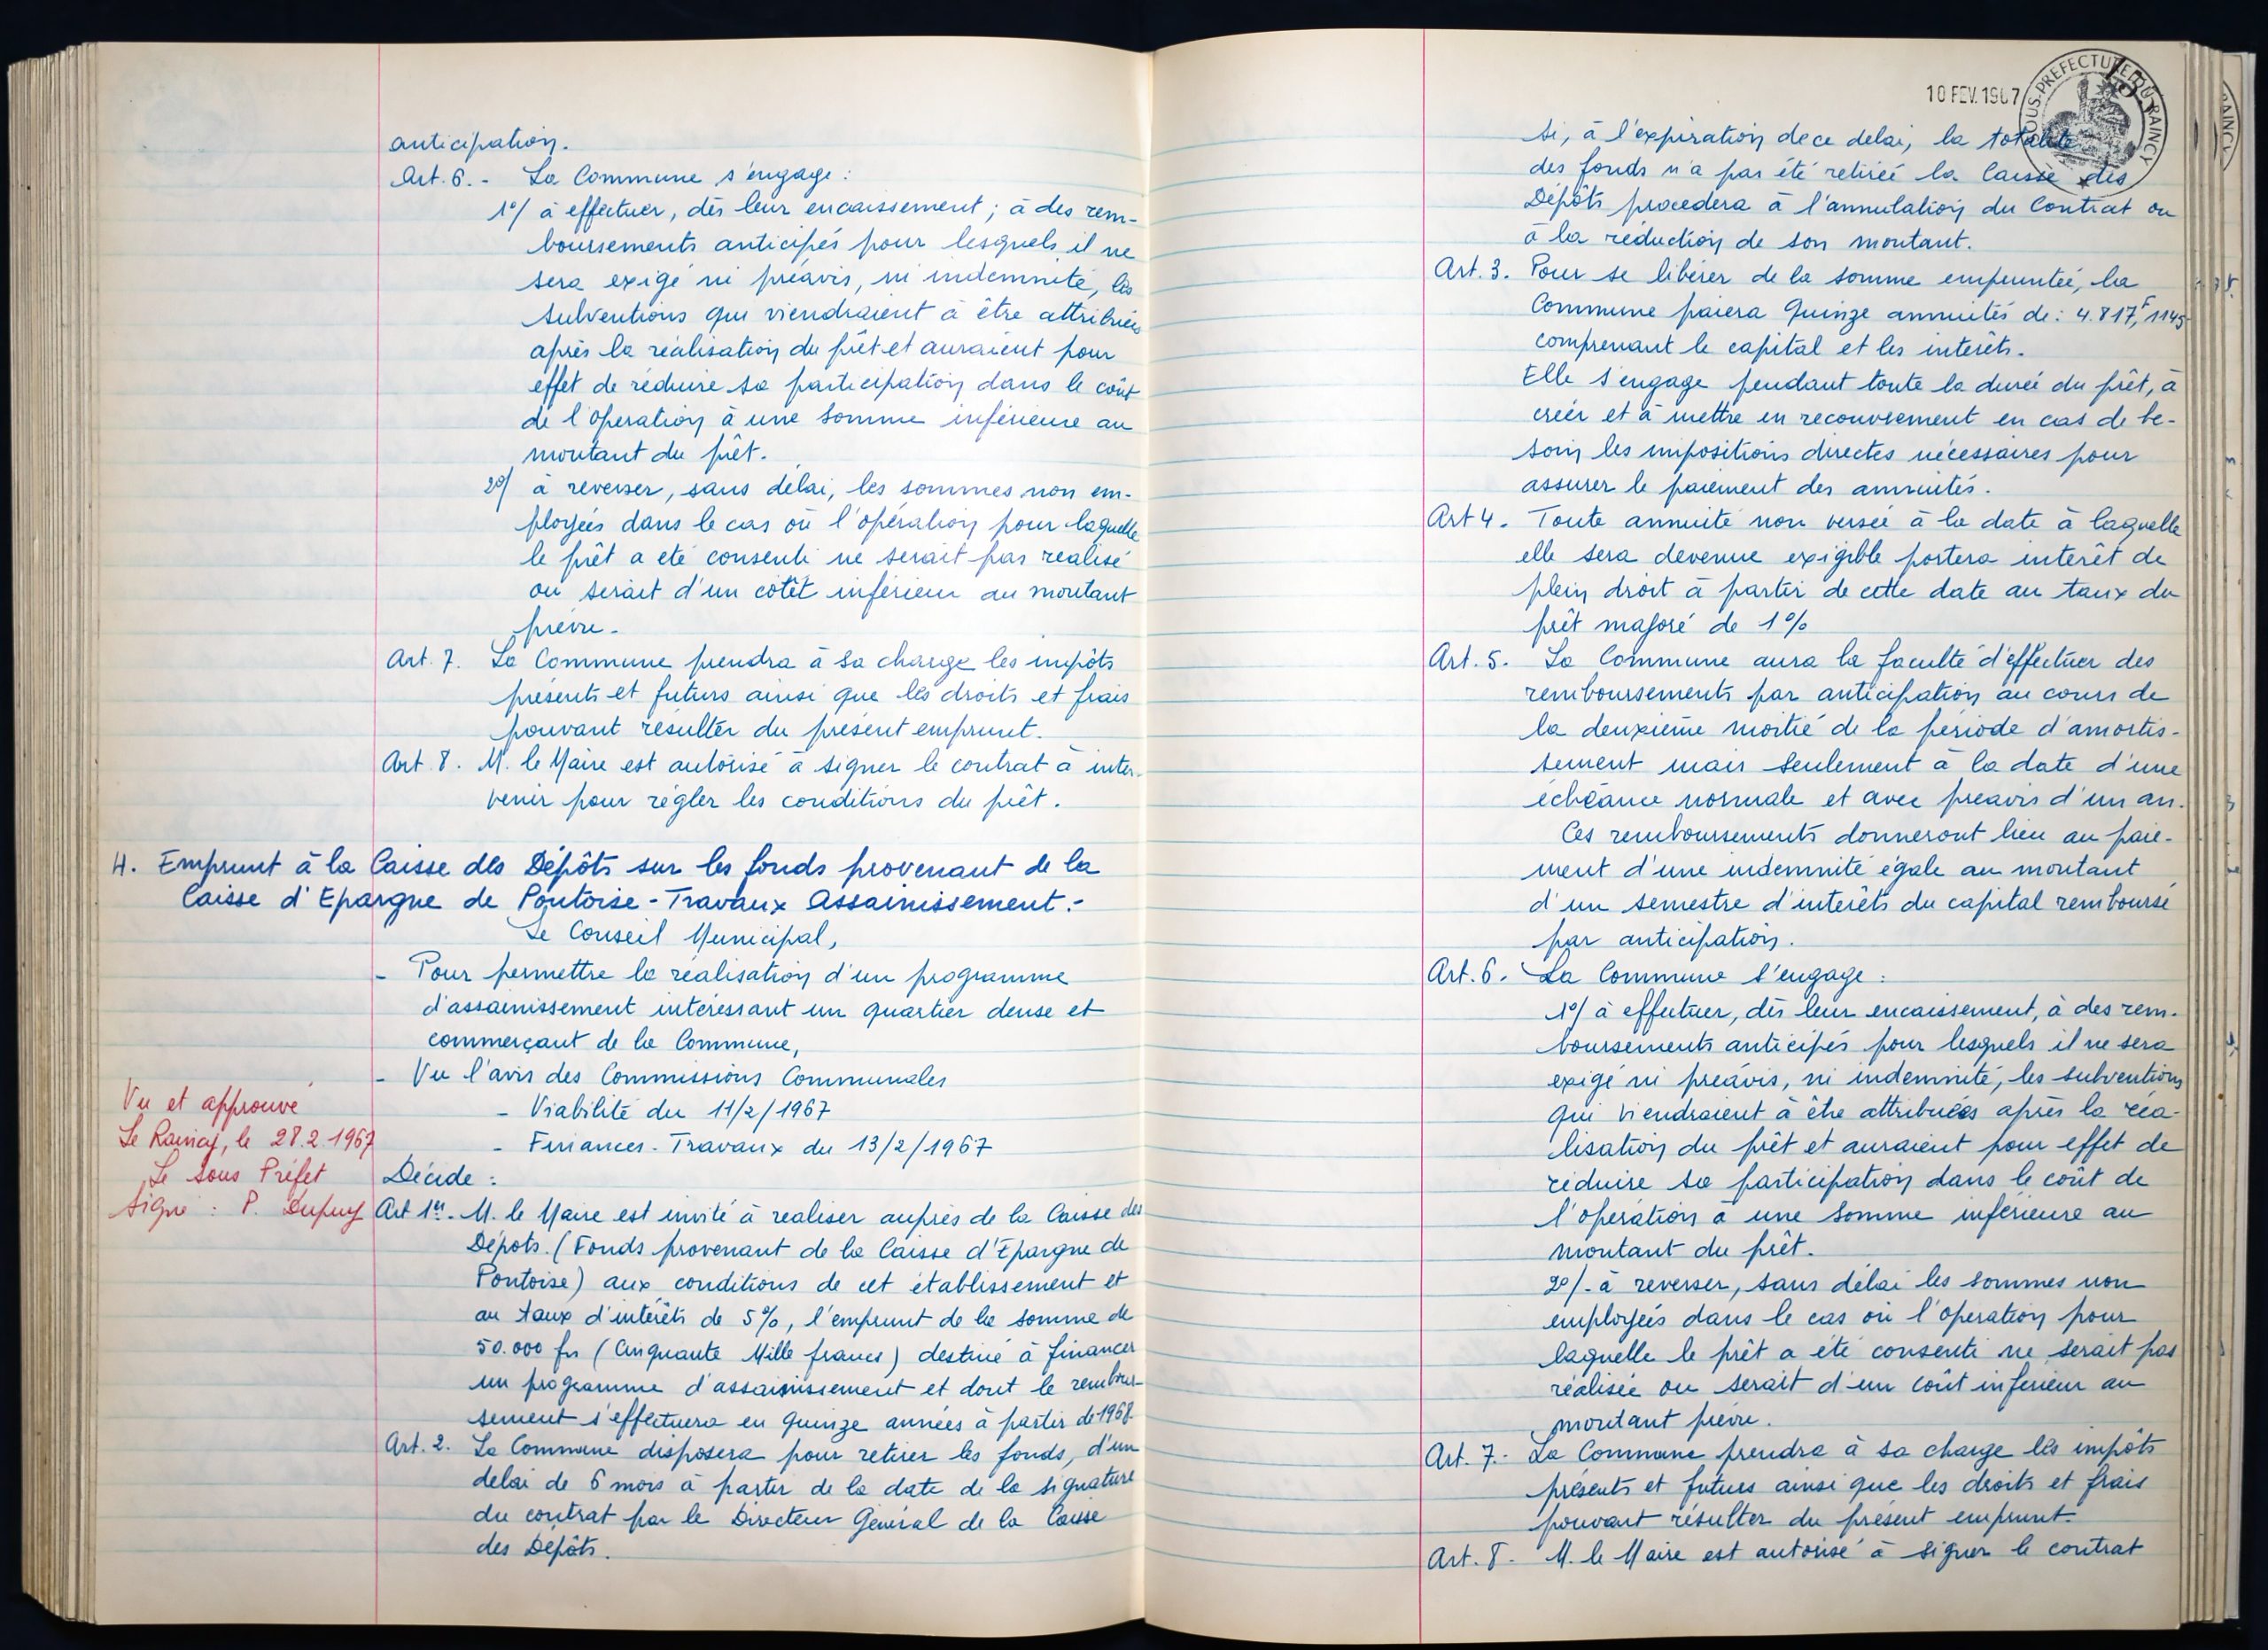 anticipation.
Art. 6. - La Commune s'engage :
1°/ à effectuer, dès leur encaissement ; à des rem-
boursements anticipés pour lesquels il ne
sera exigé ni préavis, ni indemnité, les
subventions qui viendraient à être attribuées
après la réalisation du prêt et auraient pour
effet de réduire sa participation dans le coût
de l'opération à une somme inférieure au
montant du prêt.
2°/ à reverser, sans délai, les sommes non em-
ployées dans le cas où l'opération pour laquelle
le prêt a été consenti ne serait pas réalisé
ou serait d'un côtêt inférieur au montant
prévu.
Art. 7. La Commune prendra à sa charge les impôts
présents et futurs ainsi que les droits et frais
pouvant résulter du présent emprunt.
Art. 8. M. le Maire est autorisé à signer le contrat à inter-
venir pour régler les conditions du prêt.
4. Emprunt à la Caisse des Dépôts sur les fonds provenant de la
Caisse d'Epargne de Pontoise - Travaux Assainissement.-
Le Conseil Municipal,
- Pour permettre la réalisation d'un programme
d'assainissement intéressant un quartier dense et
commerçant de la Commune,
- Vu l'avis des Commissions Communales
- Viabilité du 11/2/1967
- Finances - Travaux du 13/2/1967
Vu et approuvé
Le Raincy, le 28.2.1967
Le Sous Préfet
Signé : P. Dupuy
Décide :
Art 1er. M. le Maire est invité à réaliser auprès de la Caisse des
Dépots. (Fonds provenant de la Caisse d'Epargne de
Pontoise) aux conditions de cet établissement et
au taux d'intérêts de 5%, l'emprunt de la somme de
50.000 frs (Cinquante Mille francs) destiné à financer
un programme d'assainissement et dont le rembour-
sement s'effectuera en quinze années à partir de 1968.
Art. 2. La Commune disposera pour retirer les fonds, d'un
délai de 6 mois à partir de la date de la signature
du contrat par le Directeur Général de la Caisse
des Dépôts.
10 FEV. 1967
SOUS-PREFECTURE DU RAINCY
Si, à l'expiration de ce délai, la totalité
des fonds n'a pas été retirée la Caisse des
Dépôts procedera à l'annulation du Contrat ou
à la réduction de son montant.
Art. 3. Pour se libérer de la somme empruntée, la
Commune paiera Quinze annuités de : 4.817,F1145
comprenant le capital et les intérêts.
Elle s'engage pendant toute la durée du prêt, à
créer et à mettre en recouvrement en cas de be-
soin les impositions directes nécessaires pour
assurer le paiement des annuités.
Art 4. Toute annuité non versée à la date à laquelle
elle sera devenue exigible portera intérêt de
plein droit à partir de cette date au taux du
prêt majoré de 1%
Art. 5. La Commune aura la faculté d'effectuer des
remboursements par anticipation au cours de
la deuxième moitié de la période d'amortis-
sement mais seulement à la date d'une
échéance normale et avec préavis d'un an.
Ces remboursements donneront lieu au paie-
ment d'une indemnité égale au montant
d'un semestre d'intérêts du capital remboursé
par anticipation.
Art. 6. La Commune s'engage :
1°/ à effectuer, dès leur encaissement, à des rem-
boursements anticipés pour lesquels il ne sera
exigé ni préavis, ni indemnité, les subventions
qui viendraient à être attribuées après la réa-
lisation du prêt et auraient pour effet de
réduire sa participation dans le coût de
l'opération à une somme inférieure au
montant du prêt.
2°/. à reverser, sans délai les sommes non
employées dans le cas où l'opération pour
laquelle le prêt a été consenti ne serait pas
réalisée ou serait d'un coût inférieur au
montant prévu.
Art. 7. La Commune prendra à sa charge les impôts
présents et futurs ainsi que les droits et frais
pouvant résulter du présent emprunt.
Art. 8. M. le Maire est autorisé à signer le contrat